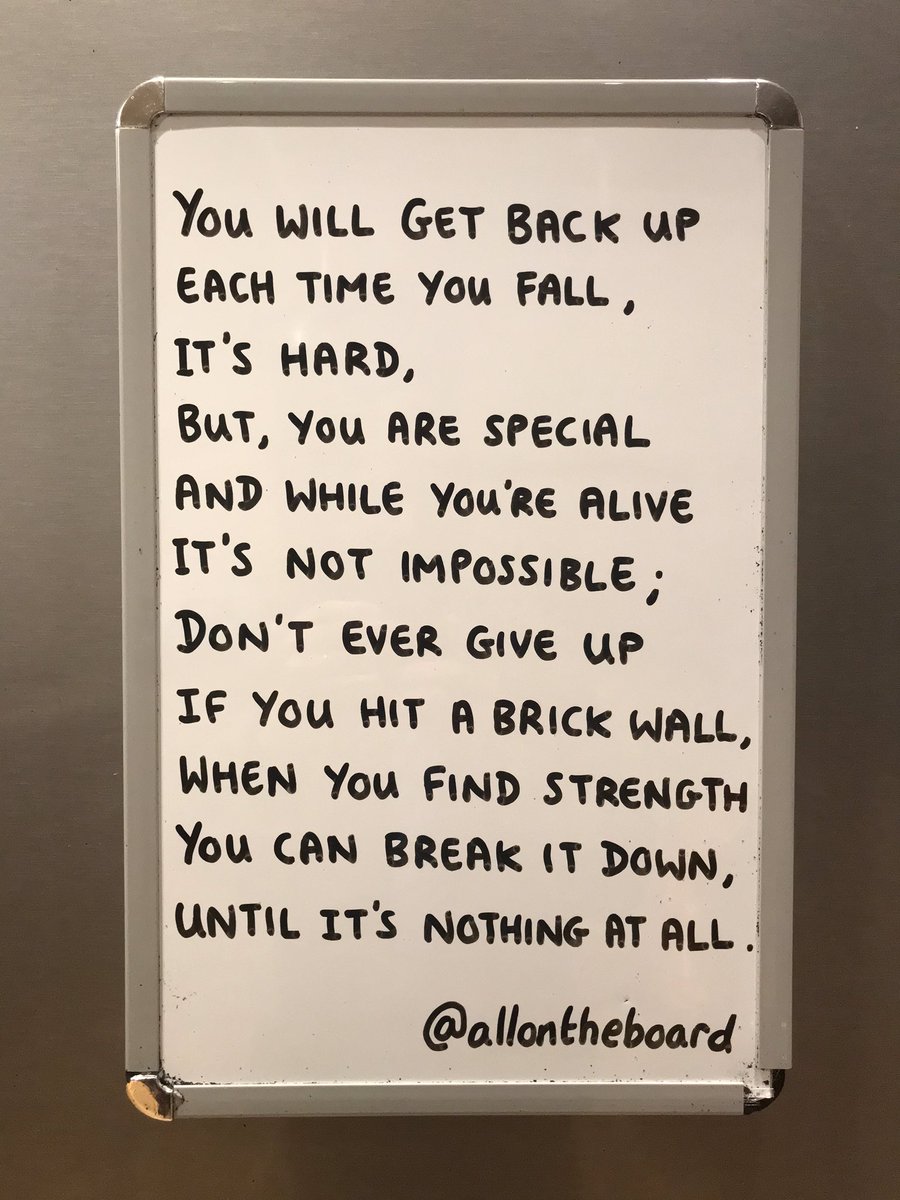 YOU WILL GET BACK UP
EACH TIME YOU FALL,
IT'S HARD,
BUT, YOU ARE SPECIAL
AND WHILE YOU'RE ALIVE
IT'S NOT IMPOSSIBLE;
DON'T EVER GIVE UP
IF YOU HIT A BRICK WALL,
WHEN YOU FIND STRENGTH
YOU CAN BREAK IT DOWN,
UNTIL IT'S NOTHING AT ALL.
@allontheboard